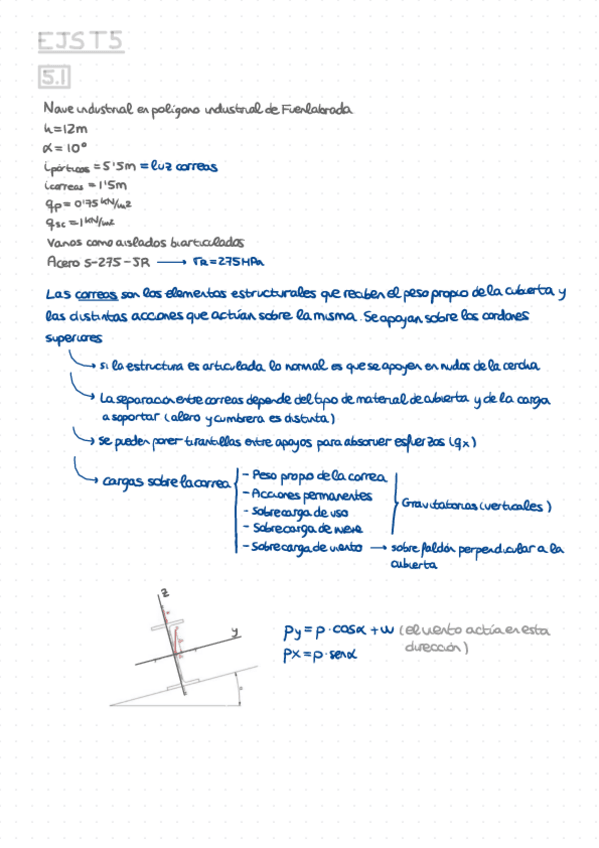 EJST5
5.1
Nave industrial en polígono industrial de Fuenlabrada
h=12m
α=10°
i pórticos = 5'5m = luz correas
i correas = 1'5m
qp = 0'75 kN/m2
qsc = 1 kN/m2
Vanos como aislados biarticulados
Acero S-275-JR → σe=275MPa
Las correas son los elementos estructurales que reciben el peso propio de la cubierta y
las distintas acciones que actúan sobre la misma. Se apoyan sobre los cordones
superiores
→ si la estructura es articulada lo normal es que se apoyen en nudos de la cercha
→ La separación entre correas depende del tipo de material de cubierta y de la carga
a soportar (alero y cumbrera es distinta)
→ se pueden poner tirantillas entre apoyos para absorver esfuerzos (qx)
→ cargas sobre la correa
- Peso propio de la correa
- Acciones permanentes
- Sobrecarga de uso
- Sobrecarga de nieve
Gravitatorias (verticales)
- Sobrecarga de viento → sobre faldón perpendicular a la
cubierta
z
y
Py = p·cosα + w (el viento actúa en esta
dirección)
Px = p·senα